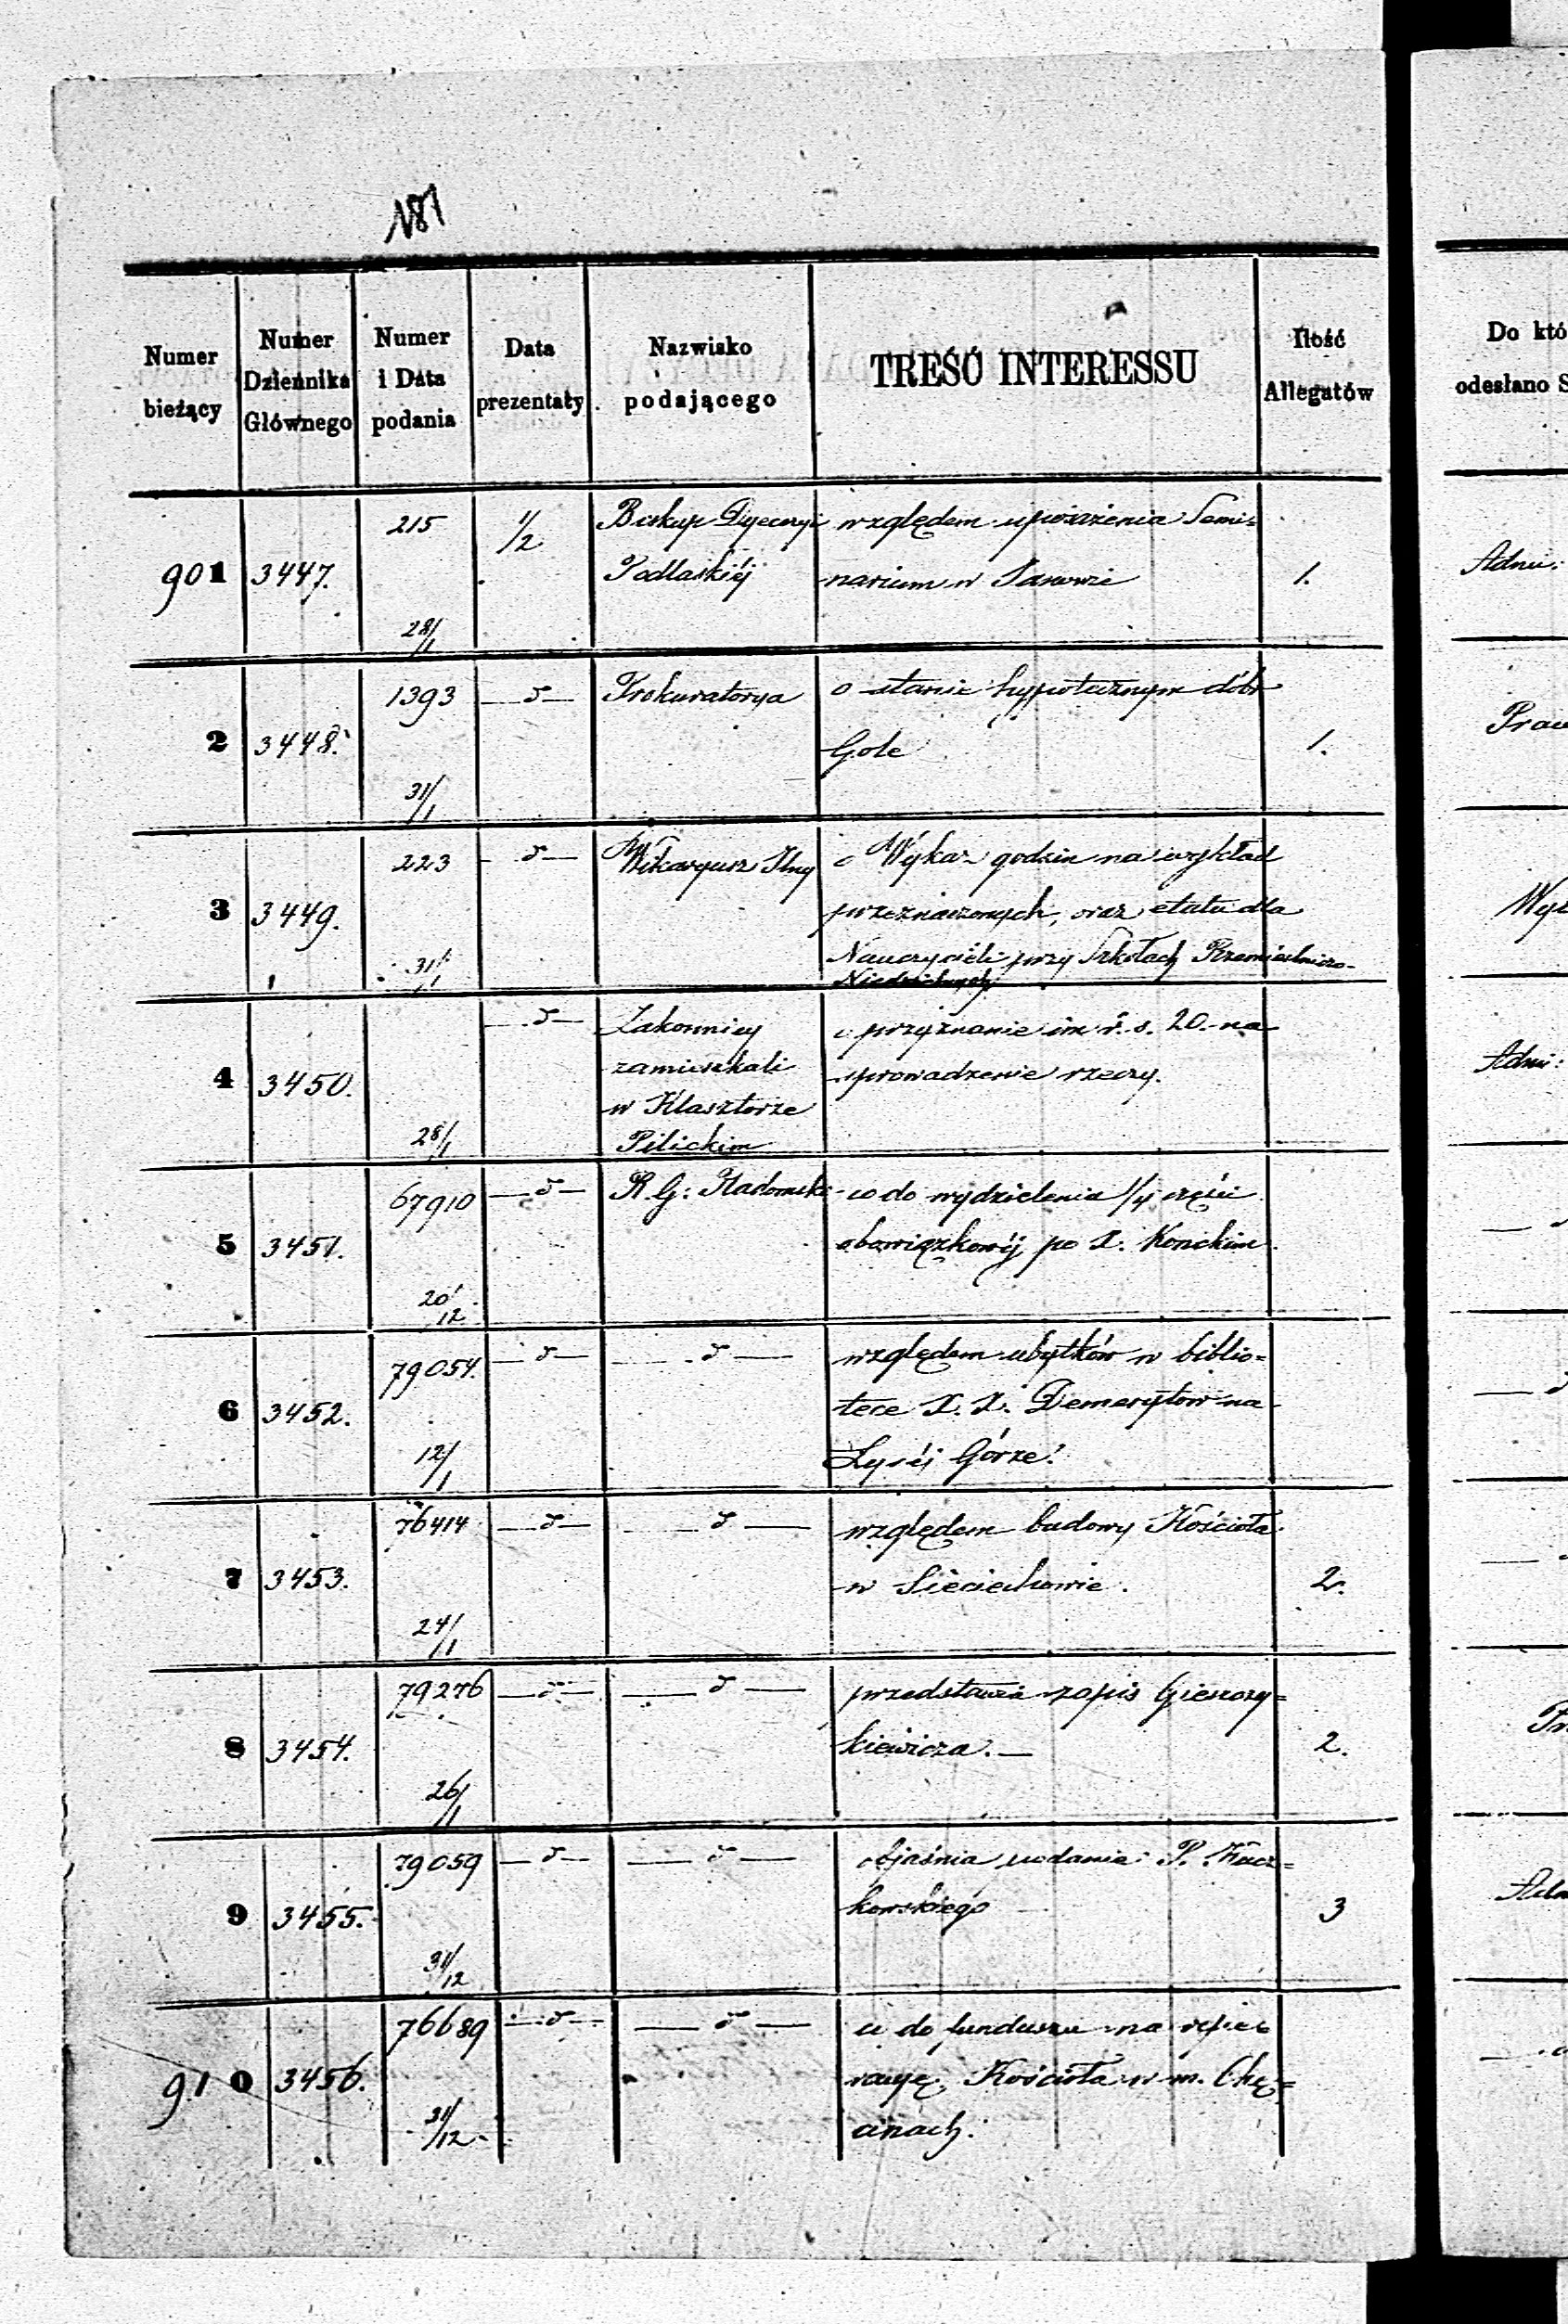 181
Numer bieżący
Numer Dziennika Głównego
Numer i Data podania
Data prezentaty
Nazwisko podającego
TREŚĆ INTERESSU
Ilość Allegatów
Do któ
odesłano S
901 3447. 215 28/1 1/2
Biskup Dyecezyi
Podlaskiéj
względem uposażenia Semi=
narium w Janowie
1.
Adm:
2 3448. 1393 31/1 — d —
Prokuratorya
o stanie hypotecznym dóbr
Gole
1.
Praw
3 3449. 223 31/1 — d —
Wikaryusz
o Wykaz godzin na wykład
przeznaczonych, oraz etatu dla
Nauczycieli przy Szkołach Rzemieślniczo-
Niedzielnych
Wyz
4 3450. 28/1 — d —
Zakonnicy
zamieszkali
w Klasztorze
Pilickim
o przyznanie im r. s. 20. na
sprowadzenie rzeczy.
Adm:
5 3451. 67910 20/12 — d —
R. G: Radomski
co do wydzielenia 1/4 części
obowiązkowéj po X. Konickim
6 3452. 79054. 12/1 — d — — d —
względem ubytków w biblio=
tece X. X. Demerytów na
Łyséj Górze.
7 3453. 76414 24/1 — d — — d —
względem budowy Kościoła
w Sieciechowie.
2.
8 3454. 79276 26/1 — d — — d —
przedstawia zapis
kiewicza. —
2.
9 3455. 79059 31/12 — d — — d —
objaśnia podanie P. Kacz=
kowskiego
3
Adm
910 3456. 76689 31/12 — d — — d —
co do funduszu na repe
racyę Kościoła w m. Chę=
cinach.